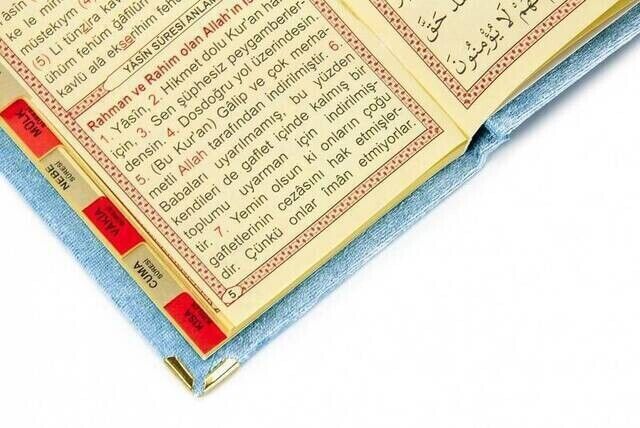 ke le min
müstekıym
(5) Li tünzira kav
ühüm fehüm ğâfilûn
kavlü alâ ekserihim fehüm
YÂSİN SÛRESİ ANLAMI
Rahman ve Rahim olan Allah'ın is
1. Yâsîn, 2. Hikmet dolu Kur'an hak
için, 3. Sen şüphesiz peygamberler-
densin. 4. Dosdoğru yol üzerindesin.
5. (Bu Kur'an) Gâlip ve çok merha-
metli Allah tarafından indirilmiştir. 6.
Babaları uyarılmamış, bu yüzden
kendileri de gaflet içinde kalmış bir
toplumu uyarman için indirilmiş-
tir. 7. Yemin olsun ki onların çoğu
gafletlerinin cezâsını hak etmişler-
dir. Çünkü onlar îmân etmiyorlar.
5
MÜLK
NEBE
SÛRESİ
VAKIA
CUMA
SÛRESİ
KISA
حَقَّ
لَا يُؤْمِنُونَ